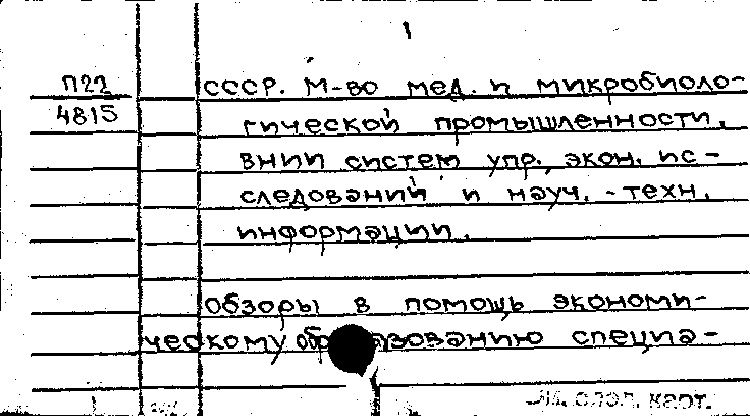 1
П22
4815
СССР. М-во мед. и микробиоло-
гической промышленности.
ВНИИ систем упр., экон. ис-
следований и науч.-техн.
информации.
Обзоры в помощь экономи-
ческому образованию специа-
См. след. карт.